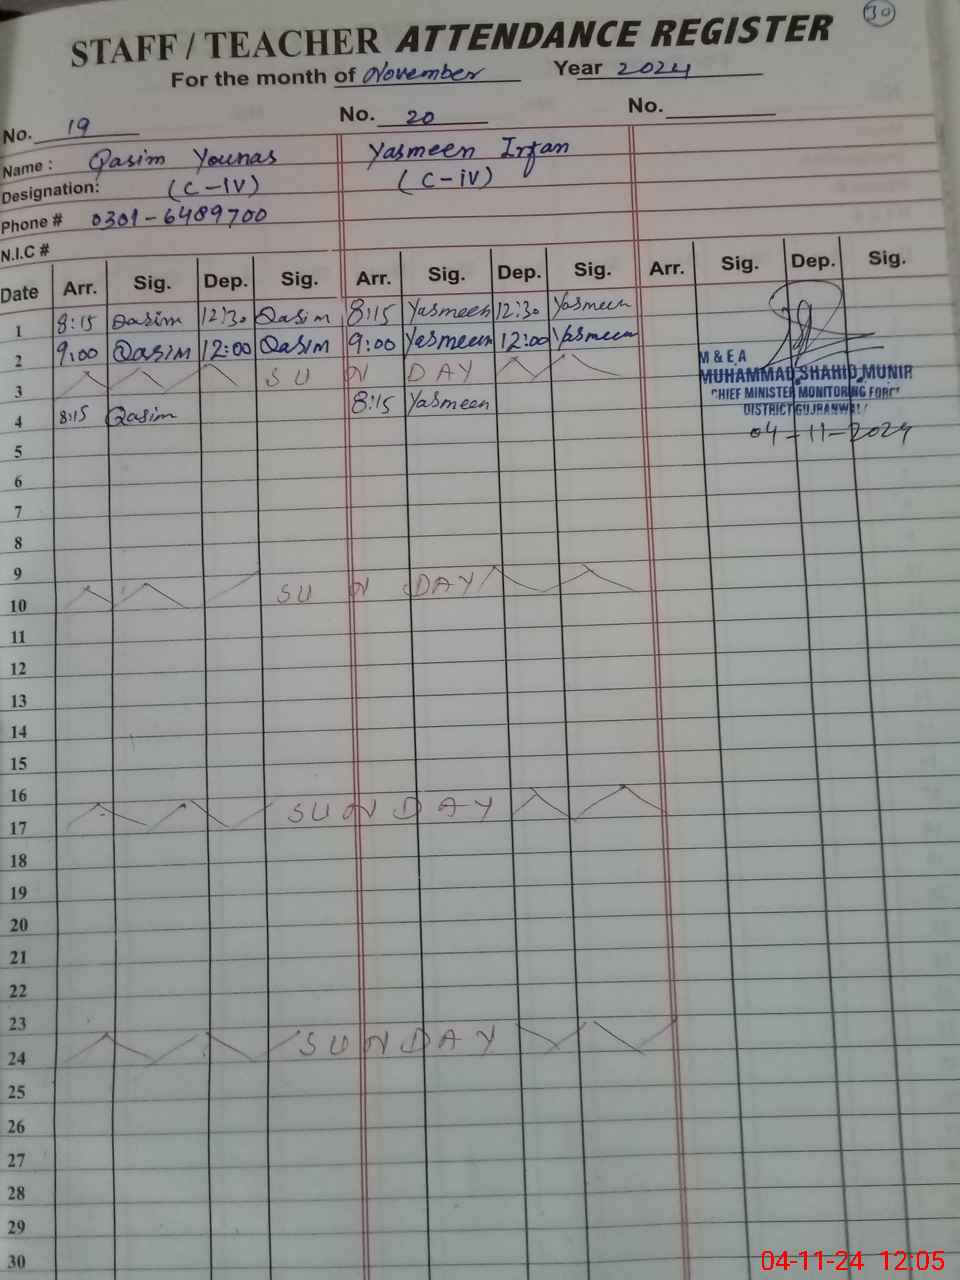 30
STAFF / TEACHER ATTENDANCE REGISTER
For the month of November Year 2024
No. 19 No. 20 No.
Name : Qasim Younas Yasmeen Irfan
Designation: (C-IV) (C-IV)
Phone # 0301-6489700
N.I.C #
Date Arr. Sig. Dep. Sig. Arr. Sig. Dep. Sig. Arr. Sig. Dep. Sig.
1 8:15 Qasim 12:30 Qasim 8:15 Yasmeen 12:30 Yasmeen
2 9:00 Qasim 12:00 Qasim 9:00 Yasmeen 12:00 Yasmeen
3 SUNDAY
4 8:15 Qasim 8:15 Yasmeen
M & E A
MUHAMMAD SHAHID MUNIR
CHIEF MINISTER MONITORING FORCE
DISTRICT GUJRANWALA
04-11-2024
5
6
7
8
9
10 SUNDAY
11
12
13
14
15
16
17 SUNDAY
18
19
20
21
22
23
24 SUNDAY
25
26
27
28
29
30
04-11-24 12:05